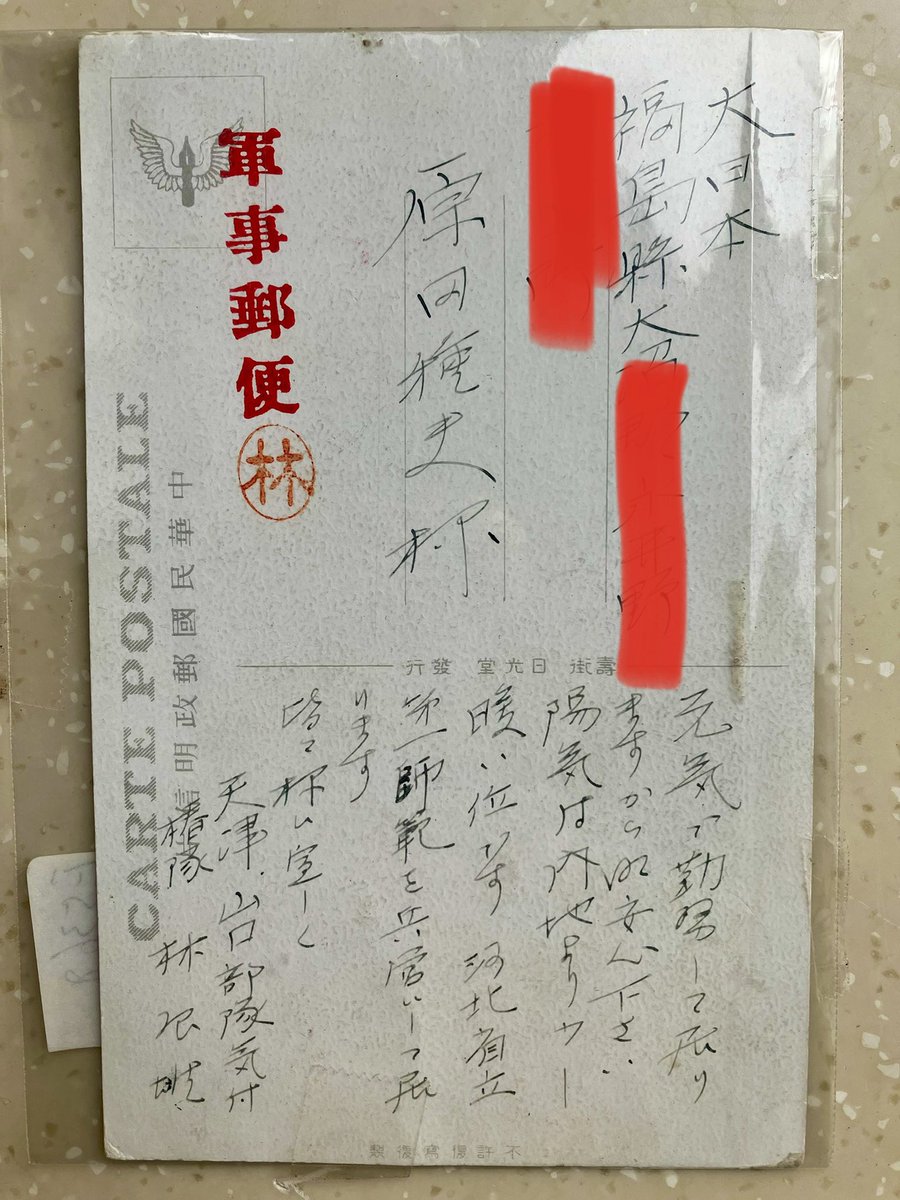 大日本
福島縣大沼
原田雅夫様
軍事郵便
林
CARTE POSTALE
中華民國郵政明信
壽街 日光堂 發行
元気で勤務して居り
ますから御安心下さい
陽気は内地より少し
暖い位です 河北省立
第一師範を兵営にして居
ります
皆々様に宜しく
天津、山口部隊気付
椿隊 林
不許複寫複製